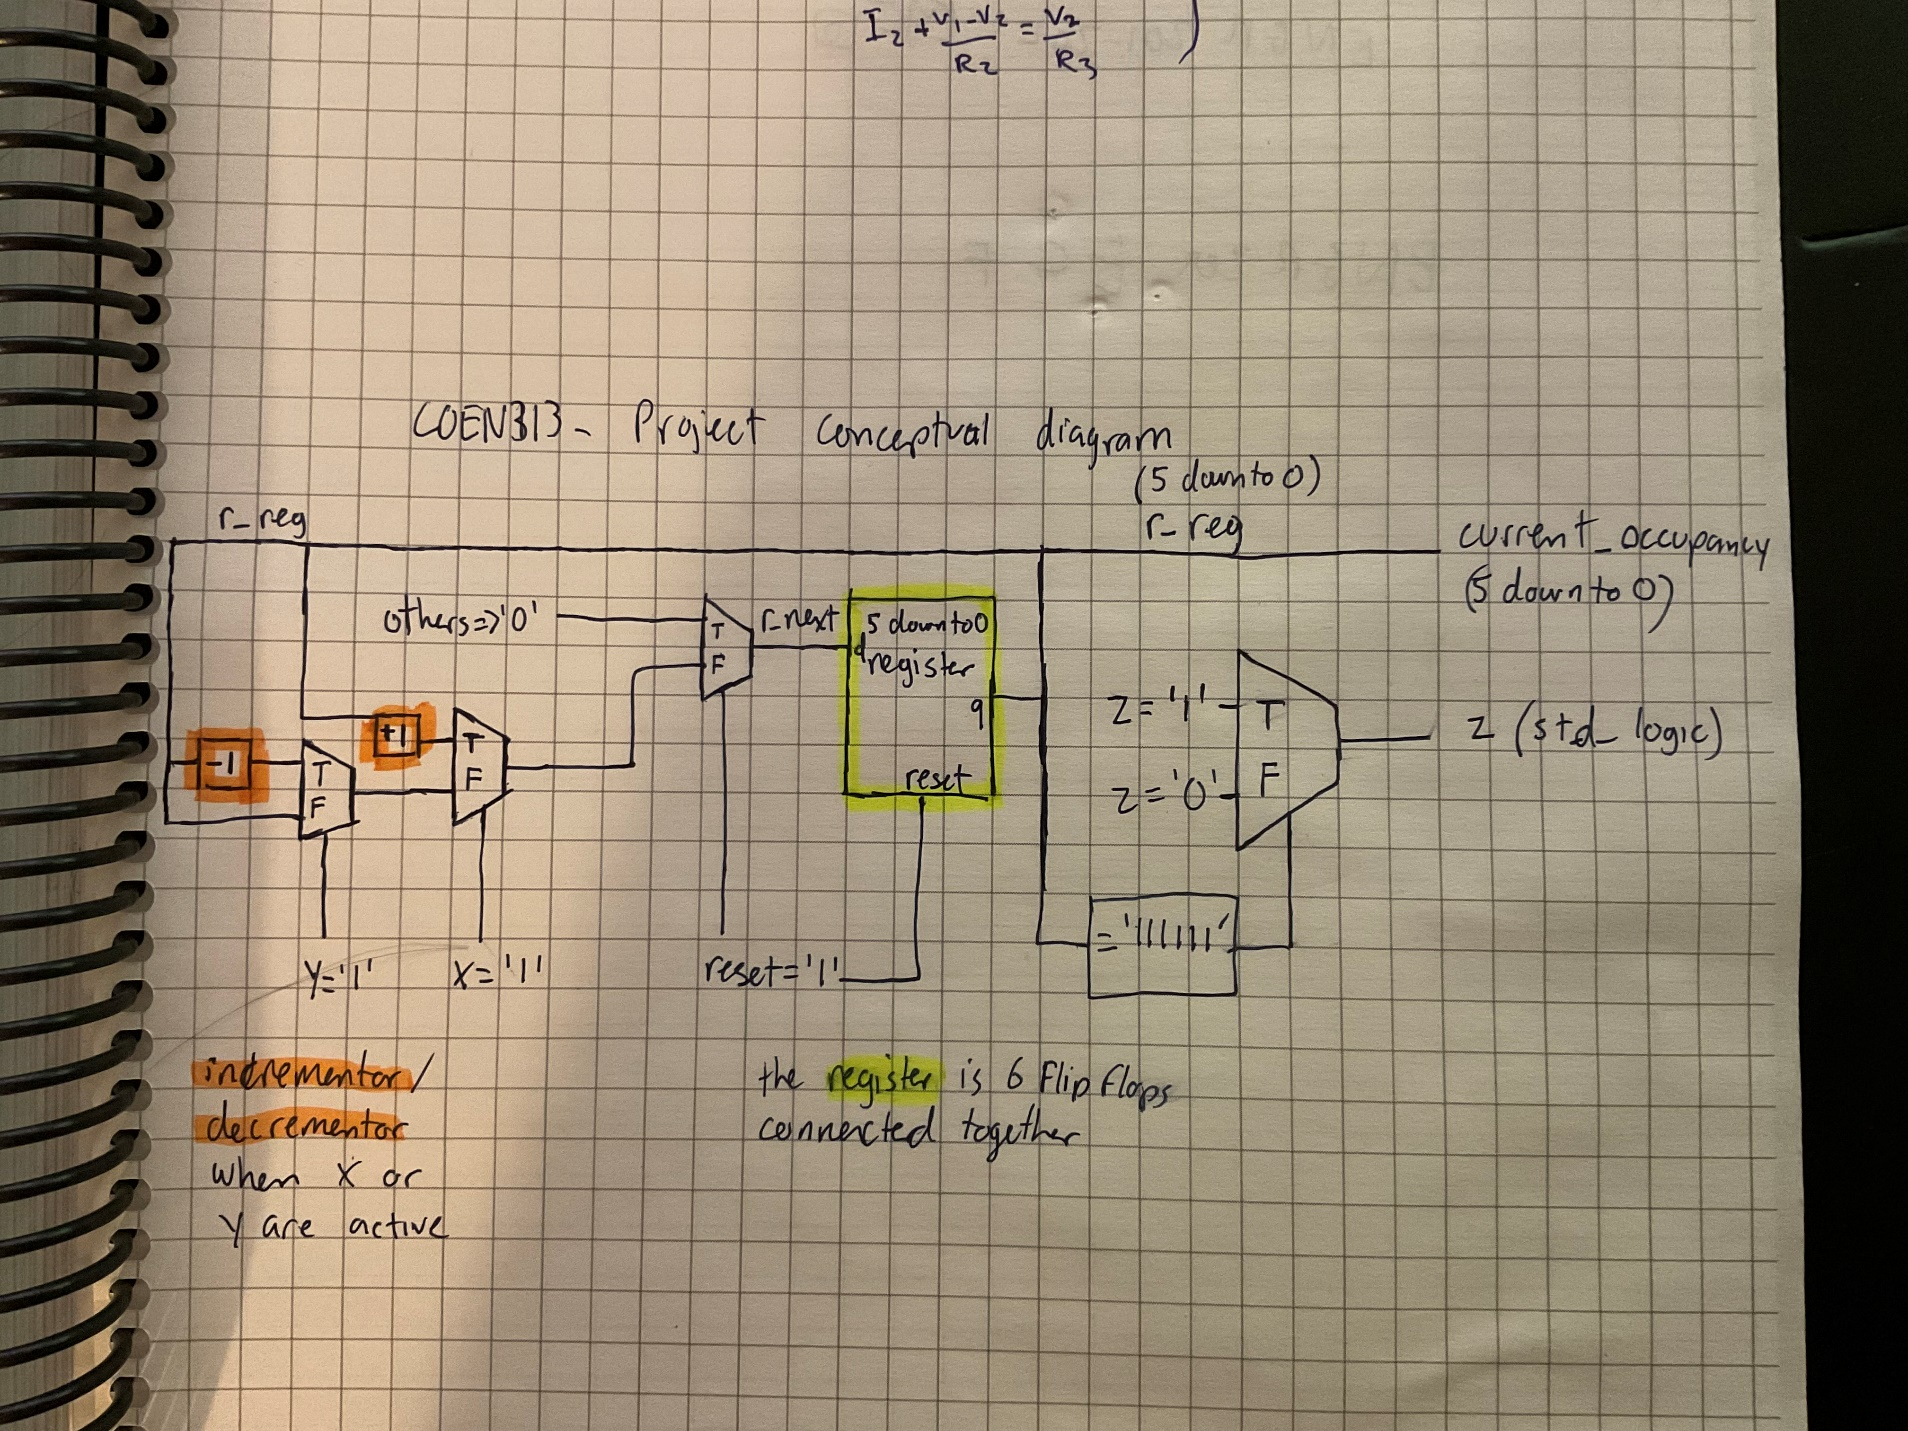 I₂ + V₁-V₂ / R₂ = V₂ / R₃ )
COEN313- Project conceptual diagram
(5 downto 0)
r_reg
r_reg
current_occupancy
(5 downto 0)
others=>'0'
T
F
r_next
5 downto 0
d register
q
reset
-1
T
F
+1
T
F
Z='1'
T
Z='0'
F
Z (std_logic)
='111111'
Y='1'
X='1'
reset='1'
incrementor/
decrementor
when X or
Y are active
the register is 6 Flip Flops
connected together